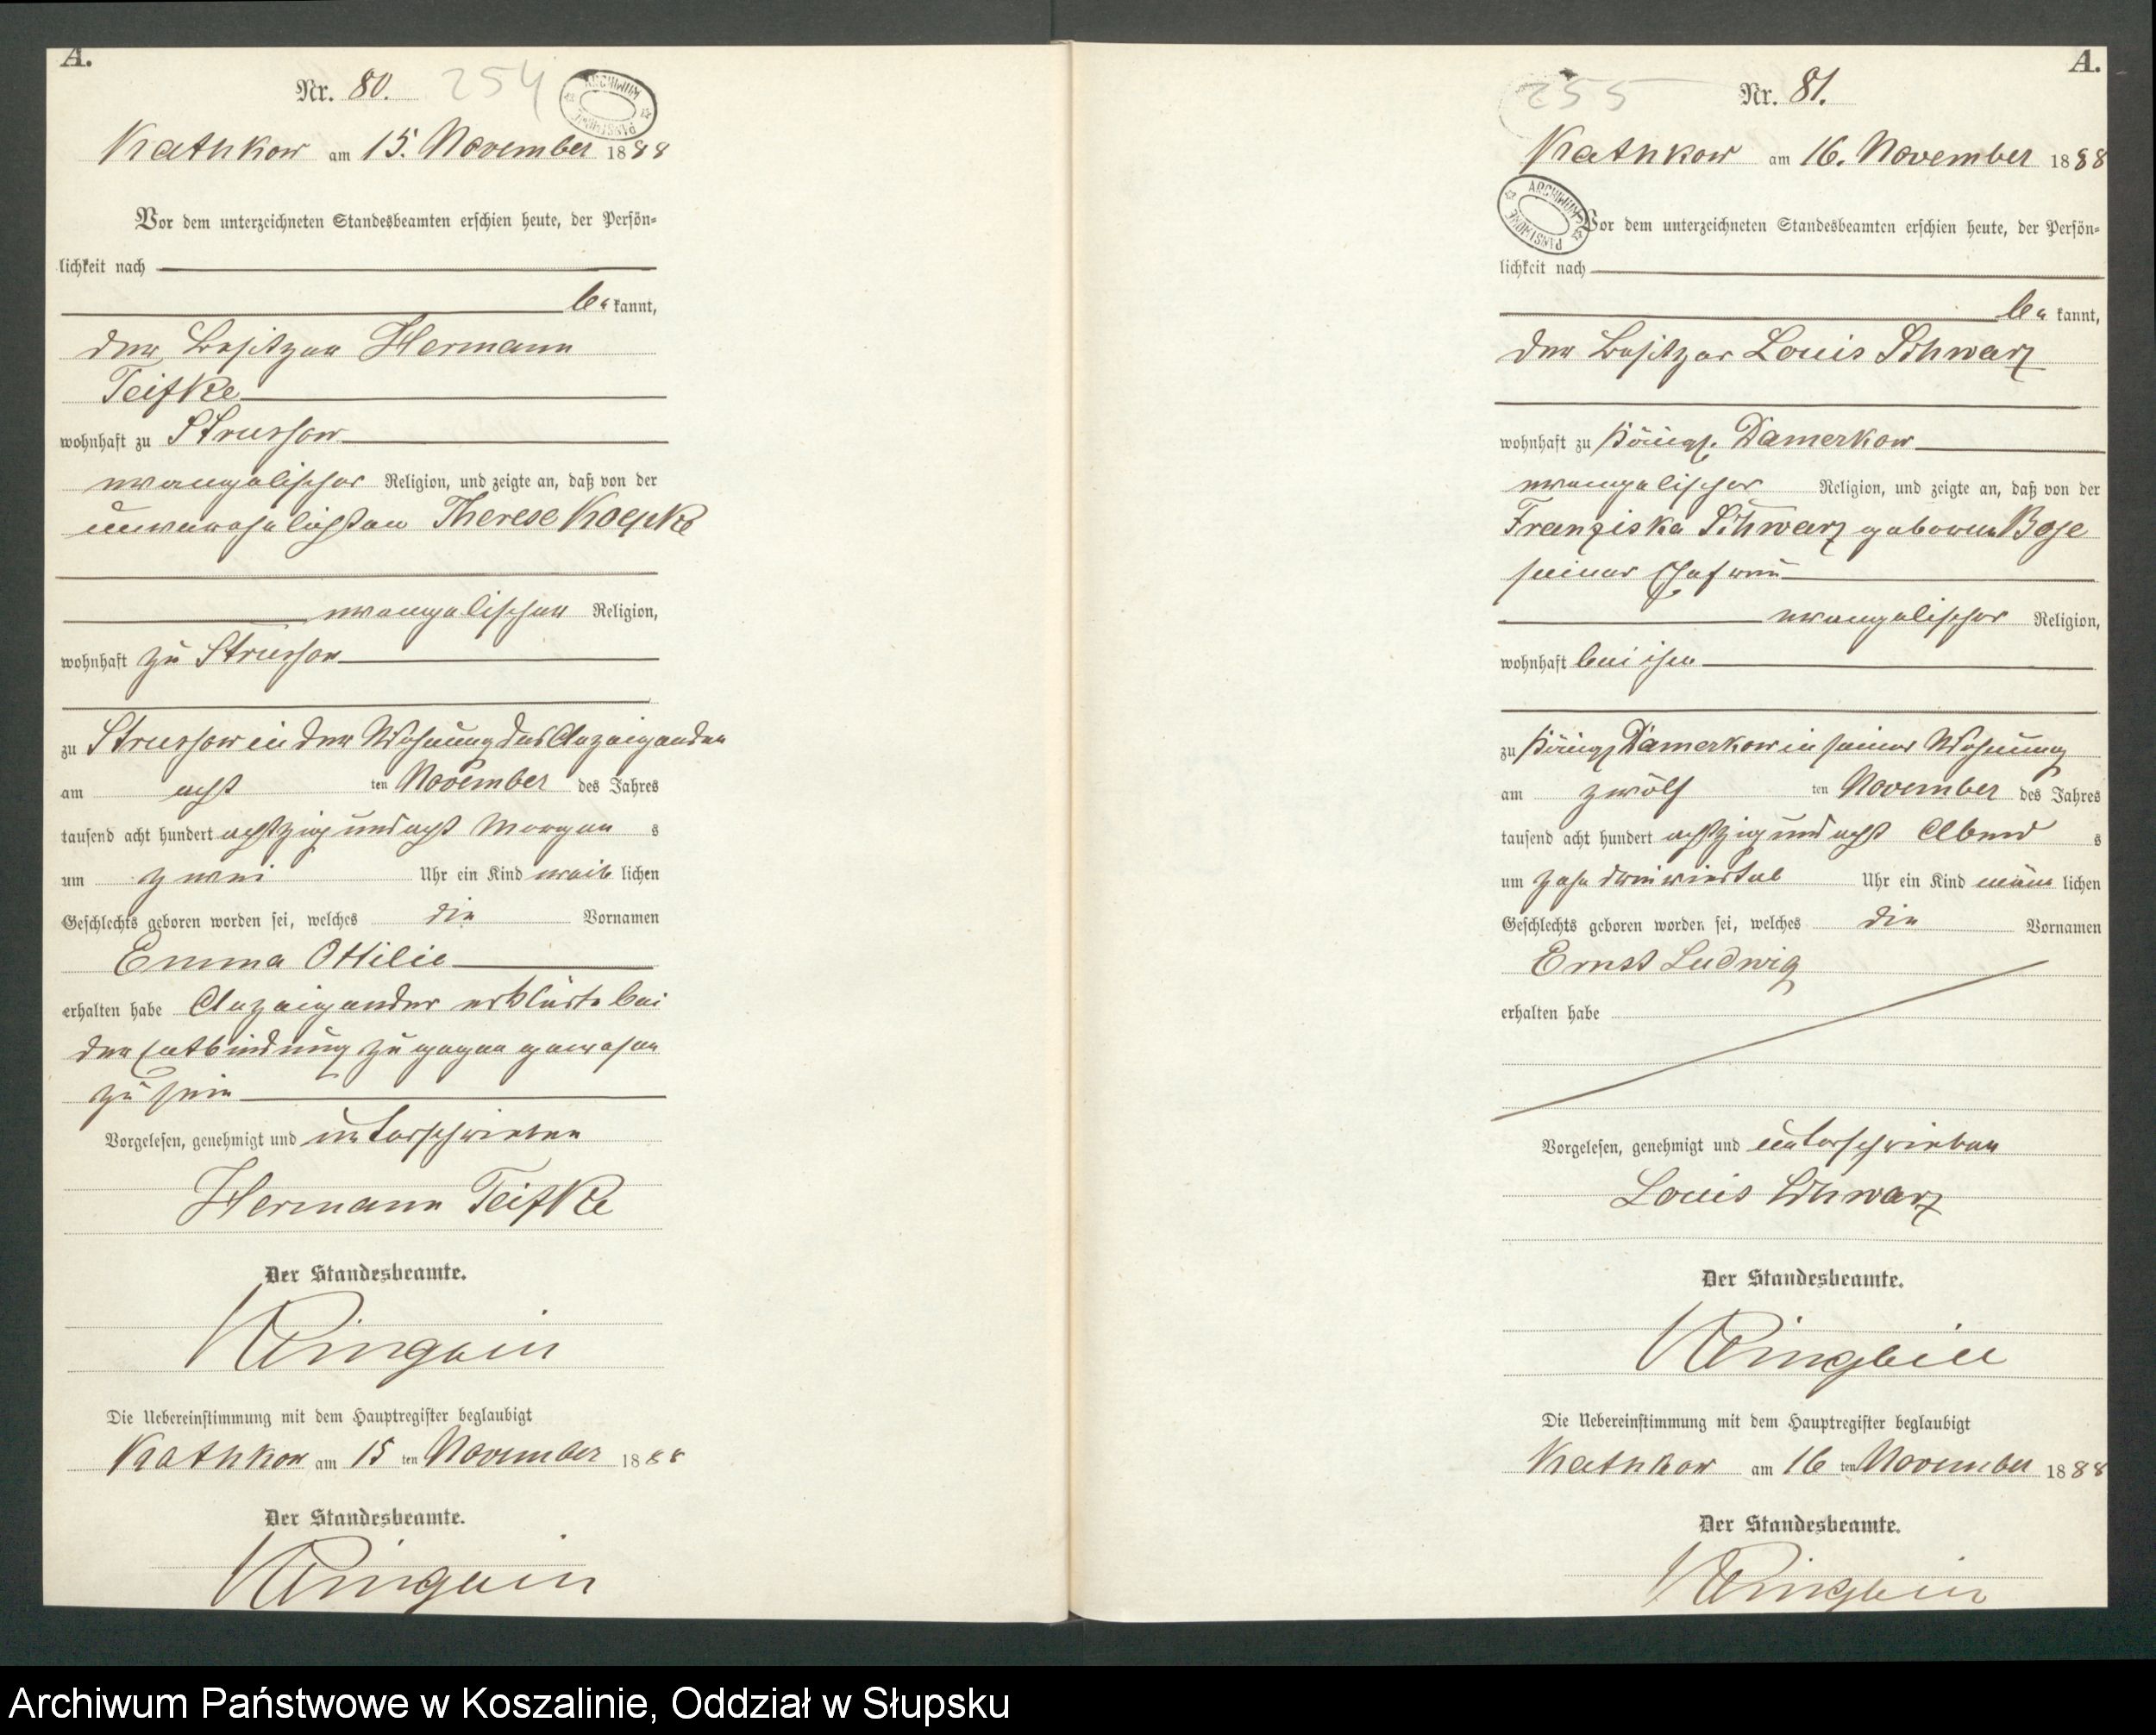 A.
Nr. 80.
254
ARCHIWUM PAŃSTWOWE
Kathkow am 15. November 1888
Vor dem unterzeichneten Standesbeamten erschien heute, der Persön=
lichkeit nach
be kannt,
der Besitzer Hermann
Teifke
wohnhaft zu Strussow
evangelischer Religion, und zeigte an, daß von der
unverehelichten Therese Koepke
evangelischen Religion,
wohnhaft zu Strussow
zu Strussow in der Wohnung des Anzeigenden
am acht ten November des Jahres
tausend acht hundert achtzig und acht Morgen s
um zwei Uhr ein Kind weib lichen
Geschlechts geboren worden sei, welches die Vornamen
Emma Ottilie
erhalten habe Anzeigender erklärte bei
der Entbindung zugegen gewesen
zu sein
Vorgelesen, genehmigt und unterschrieben
Hermann Teifke
Der Standesbeamte.
Die Uebereinstimmung mit dem Hauptregister beglaubigt
Kathkow am 15 ten November 1888
Der Standesbeamte.
A.
255
Nr. 81.
Kathkow am 16. November 1888
ARCHIWUM PAŃSTWOWE
Vor dem unterzeichneten Standesbeamten erschien heute, der Persön=
lichkeit nach
be kannt,
der Besitzer Louis Schwarz
wohnhaft zu Königl. Damerkow
evangelischer Religion, und zeigte an, daß von der
Franziska Schwarz geborene Boje
seiner Ehefrau
evangelischer Religion,
wohnhaft bei ihm
zu Königl Damerkow in seiner Wohnung
am zwölf ten November des Jahres
tausend acht hundert achtzig und acht Abend s
um zehn dreiviertel Uhr ein Kind männ lichen
Geschlechts geboren worden sei, welches die Vornamen
Ernst Ludwig
erhalten habe
Vorgelesen, genehmigt und unterschrieben
Louis Schwarz
Der Standesbeamte.
Die Uebereinstimmung mit dem Hauptregister beglaubigt
Kathkow am 16 ten November 1888
Der Standesbeamte.
Archiwum Państwowe w Koszalinie, Oddział w Słupsku